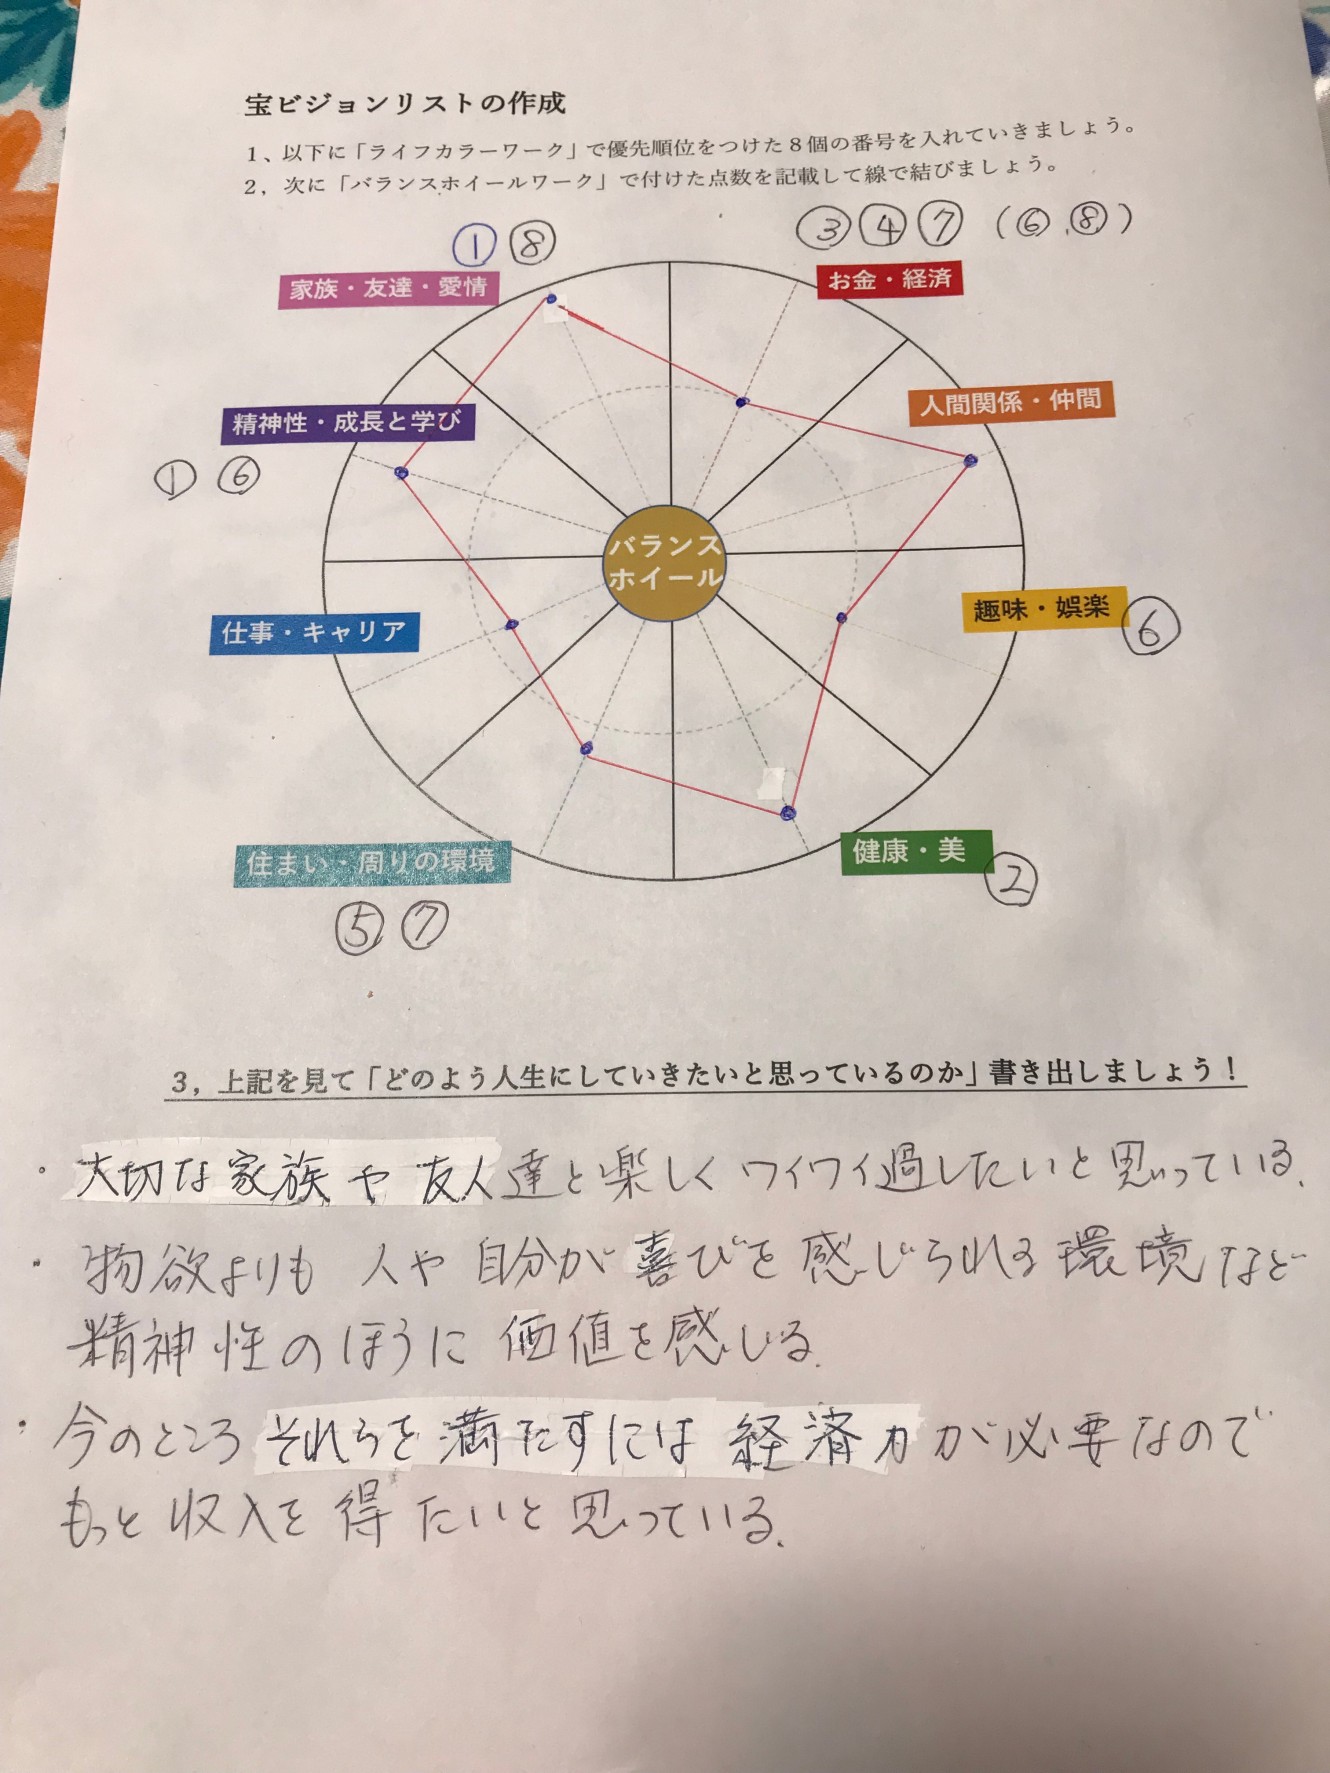 宝ビジョンリストの作成
1、以下に「ライフカラーワーク」で優先順位をつけた8個の番号を入れていきましょう。
2，次に「バランスホイールワーク」で付けた点数を記載して線で結びましょう。
① ⑧
③ ④ ⑦ (⑥、⑧)
家族・友達・愛情
お金・経済
精神性・成長と学び
人間関係・仲間
① ⑥
バランス
ホイール
仕事・キャリア
趣味・娯楽 ⑥
住まい・周りの環境
健康・美 ②
⑤ ⑦
3，上記を見て「どのよう人生にしていきたいと思っているのか」書き出しましょう！
・大切な家族や友人達と楽しくワイワイ過したいと思っている。
・物欲よりも人や自分が喜びを感じられる環境など
精神性のほうに価値を感じる。
・今のところそれらを満たすには経済力が必要なので
もっと収入を得たいと思っている。